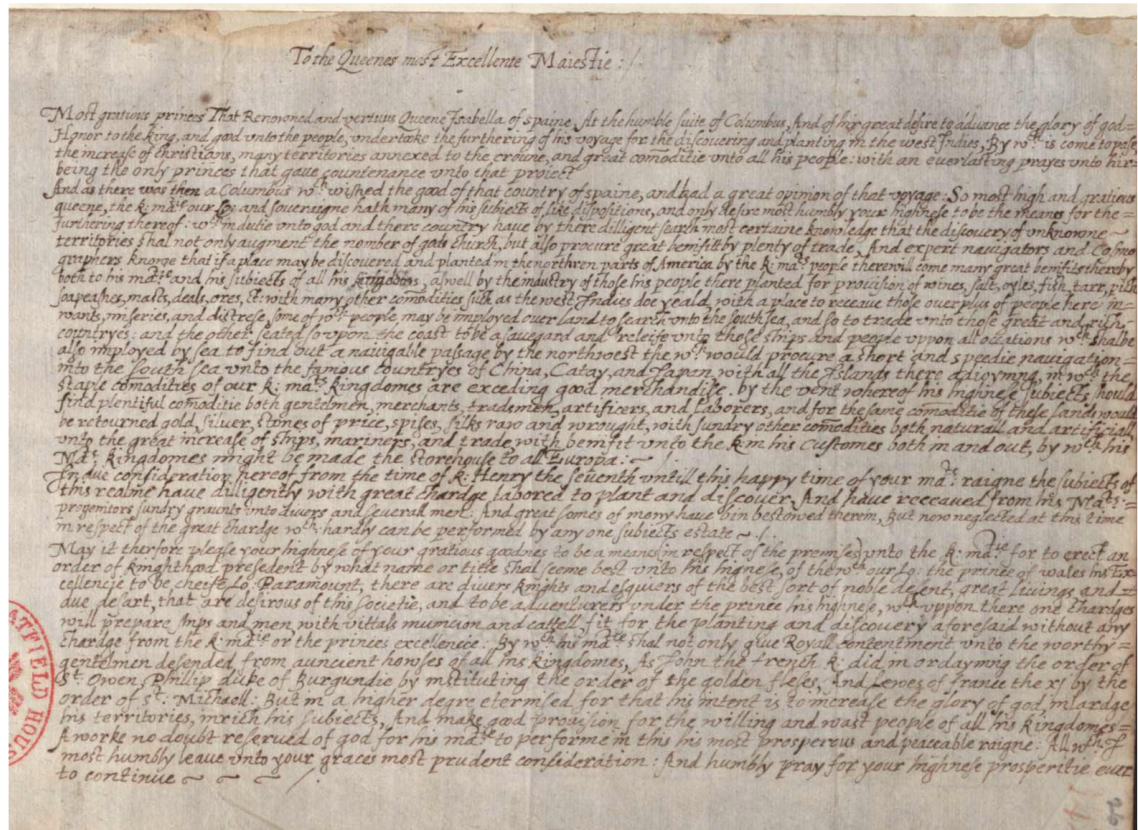 To the Queenes most Excellente Maiestie :
Most gratious princes That Renowned and vertius Queene Isabella of spaine, At the humble suite of Columbus, And of hir great desire to advance the glory of god =
Honor to the king, and good vnto the people, vndertake the furthering of his voyage for the discovering and planting in the west Indies, By wch is come to passe
the increase of christians, many territories annexed to the crowne, and great comoditie vnto all his people: with an everlasting prayes vnto hir
being the only princes that gave countenance vnto that proiect
And as there was then a Columbus wch wished the good of that country of spaine, and had a great opinion of that voyage: So most high and gratious
queene, the k: matie our Lo: and soueraigne hath many of his subiects of like dispositions, and only desire most humbly your highnese to be the meanes for the =
furthering therof: wch in dutie vnto god and there country have by there dilligent search most certaine knowledge that the discovery of vnknowne
territories shal not only augment the nomber of gods church, but also procure great benifitt by plenty of trade, And expert navigators and Cosmo
graphers knowe that if a place may be discovered and planted in the northren parts of America by the k: mats people there will come many great benifits thereby
both to his matie and his subiects of all his kingdoms, aswell by the industry of those his people there planted for provision of wines, salt, oyles, fish, tarr, pitch
soapeashes, masts, deals, ores, &t: with many other comodities such as the west Indies doe yeald, with a place to receiue those overplus of people here in =
wants, miseries, and distrese, some of wch people may be imployed over land to search vnto the south sea, and so to trade vnto those great and rich
countryes: and the other seated so vpon the coast to be a savegard and releife vnto those ships and people vppon all occations wch shalbe
also imployed by sea to find out a navigable passage by the northwest the wch would procure a short and speedie navigation =
into the south sea vnto the famous countryes of China, Catay, and Japan, with all the Islands there adioyning, in wch the
staple comodities of our k: mats kingdomes are exceding good merchandise. by the vent whereof his highnese subiects should
find plentiful comoditie both gentelmen, merchants, tradsmen, artificers, and Laborers, and for the same comoditie of these lands would
be retourned gold, silver, stones of price, spises, silks raw and wrought, with sundry other comodities both naturall and artificiall
vnto the great increase of ships, mariners, and trade with benifit vnto the k: in his Customes both in and out, by wch his
Mats kingdomes might be made the storehouse to all Europa :
In due consideration hereof from the time of k: Henry the seventh vntill this happy time of your mats raigne the subiects of
this realme have diligently with great chardge labored to plant and discover, And have receaved from his Mats =
progenitors sundry graunts vnto divers and severall men: And great somes of mony have bin bestowed therein, But now neglected at this time
in respect of the great chardge wch hardly can be performed by any one subiects estate
May it therfore please your highnese of your gratious goodnes to be a meanes in respect of the premises vnto the k: matie for to erect an
order of knighthood presedent by what name or title shal seeme best vnto his highnese, of the wch our Lo: the prince of wales his Ex =
cellencie to be cheife Lo: Paramount, there are divers knights and esquiers of the best sort of noble desent, great livings, and =
due desart, that are desirous of this societie, and to be adventurers vnder the prince his highnese, wch vppon there one chardges
will prepare ships and men with vittals municion and cattell fit for the planting and discovery aforesaid without any
chardge from the k: matie or the princes excellencie: By wch his matie shal not only give Royal contentment vnto the worthy =
gentelmen desended from auncient howses of all his kingdomes, As John the french k: did in ordayning the order of
St. Owen, Philip duke of Burgundie by instituting the order of the golden fleese, And Lewes of france the xj by the
order of St. Michaell: But in a higher degre etermised for that his intent is to increase the glory of god, inlardge
his territories, inrich his subiects, And make good provision for the willing and wast people of all his kingdomes =
A worke no doubt reserved of god for his matie to performe in this his most prosperous and peaceable raigne: All wch I
most humbly leave vnto your graces most prudent consideration: And humbly pray for your highnese prosperitie ever
to continue
ATFIELD HOUS
26